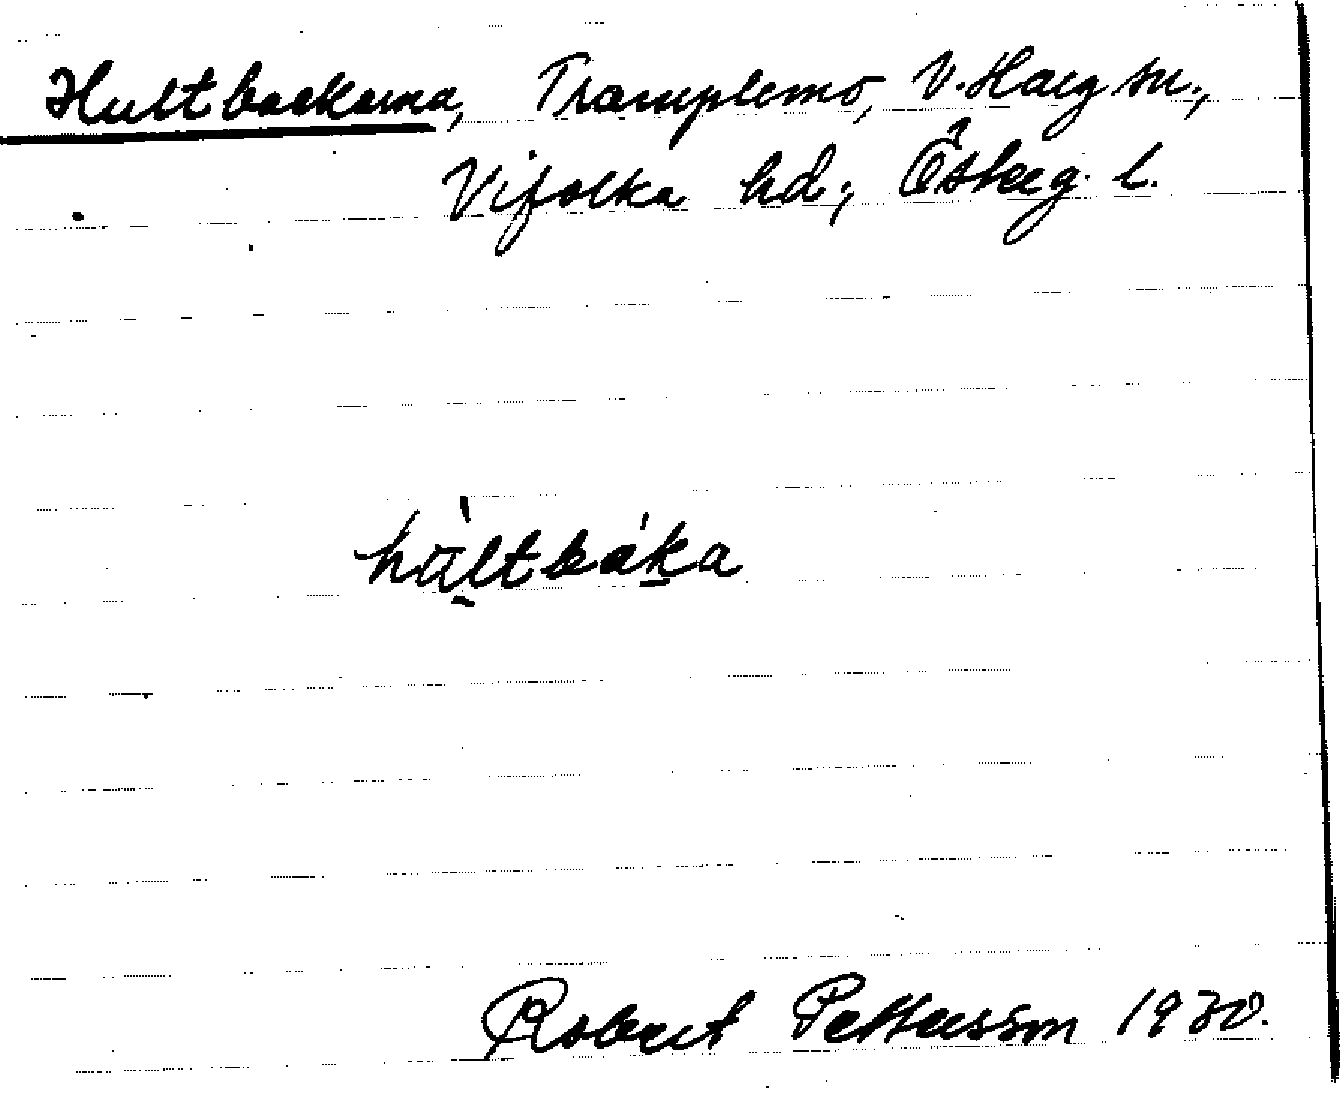 Hultbackarna, Tramplemo, V. Harg sn.,
Vifolka hd; Österg. l.
hu̱̇̀ltbák̠a
Robert Pettersson 1930.